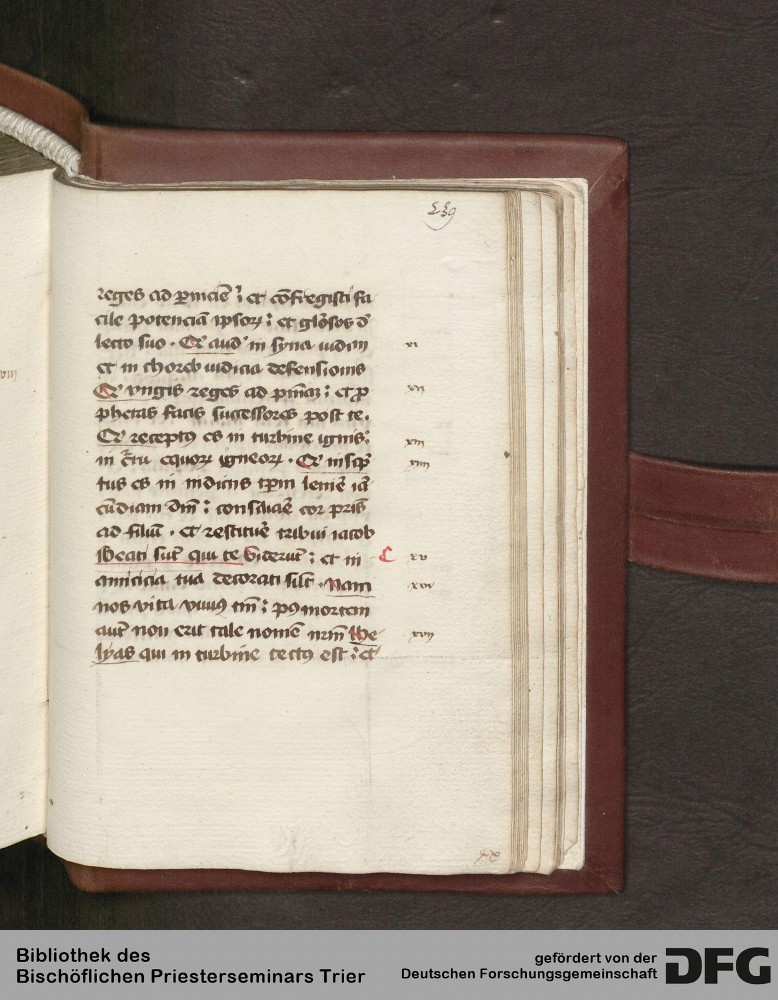 239
reges ad ꝑniciē ; et cōfregisti fa
cile potenciā ipsoꝝ ; et gl̄osos d̄
lecto suo . Q̇ aud̄ in syna iudiū
et in choreb iudicia defensionis
Q̇ vngis reges ad pnīaꝫ ; et ꝓ
phetas facis successores post te.
Q̇ receptꝰ es in turbine ignis ;
in c̄ru equoꝝ igneoꝝ . Q̇ inscꝑ
tus es in iudiciis tꝑm lenire ią
cūdiam dn̄i ; conciliaē cor pr̄is
ad filiū . et restitue tribui iacob
Beati sūt qui te viderūt ; et in
amiticia tua decorati sūt . Nam
nos vita viuiꝰ tm̄ ; pꝰ mortem
aut̄ non erit tale nomē nr̄m He
lyas qui in turbine tectꝰ est ; et
xi
xii
xiii
xiiii
xv
xvi
xvii
Bibliothek des
Bischöflichen Priesterseminars Trier
gefördert von der
Deutschen Forschungsgemeinschaft
DFG